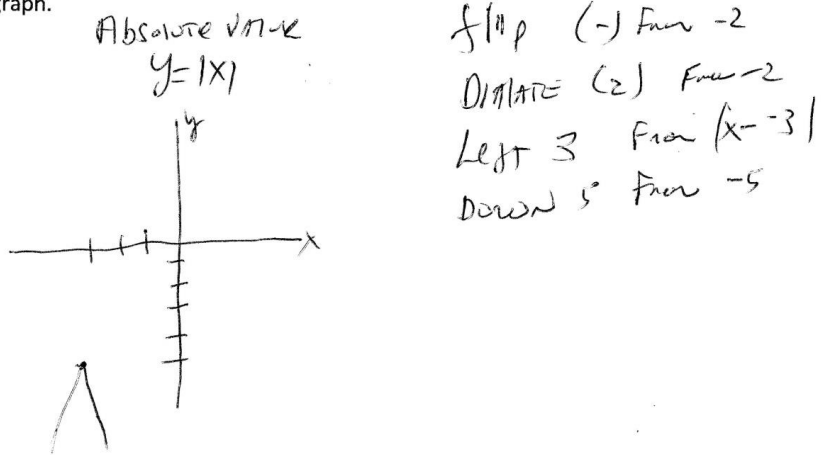 raph.
Absolute Value
y=|x|
y
x
flip (-) From -2
DIlATE (2) From -2
Left 3 From |x--3|
DOWN 5 From -5